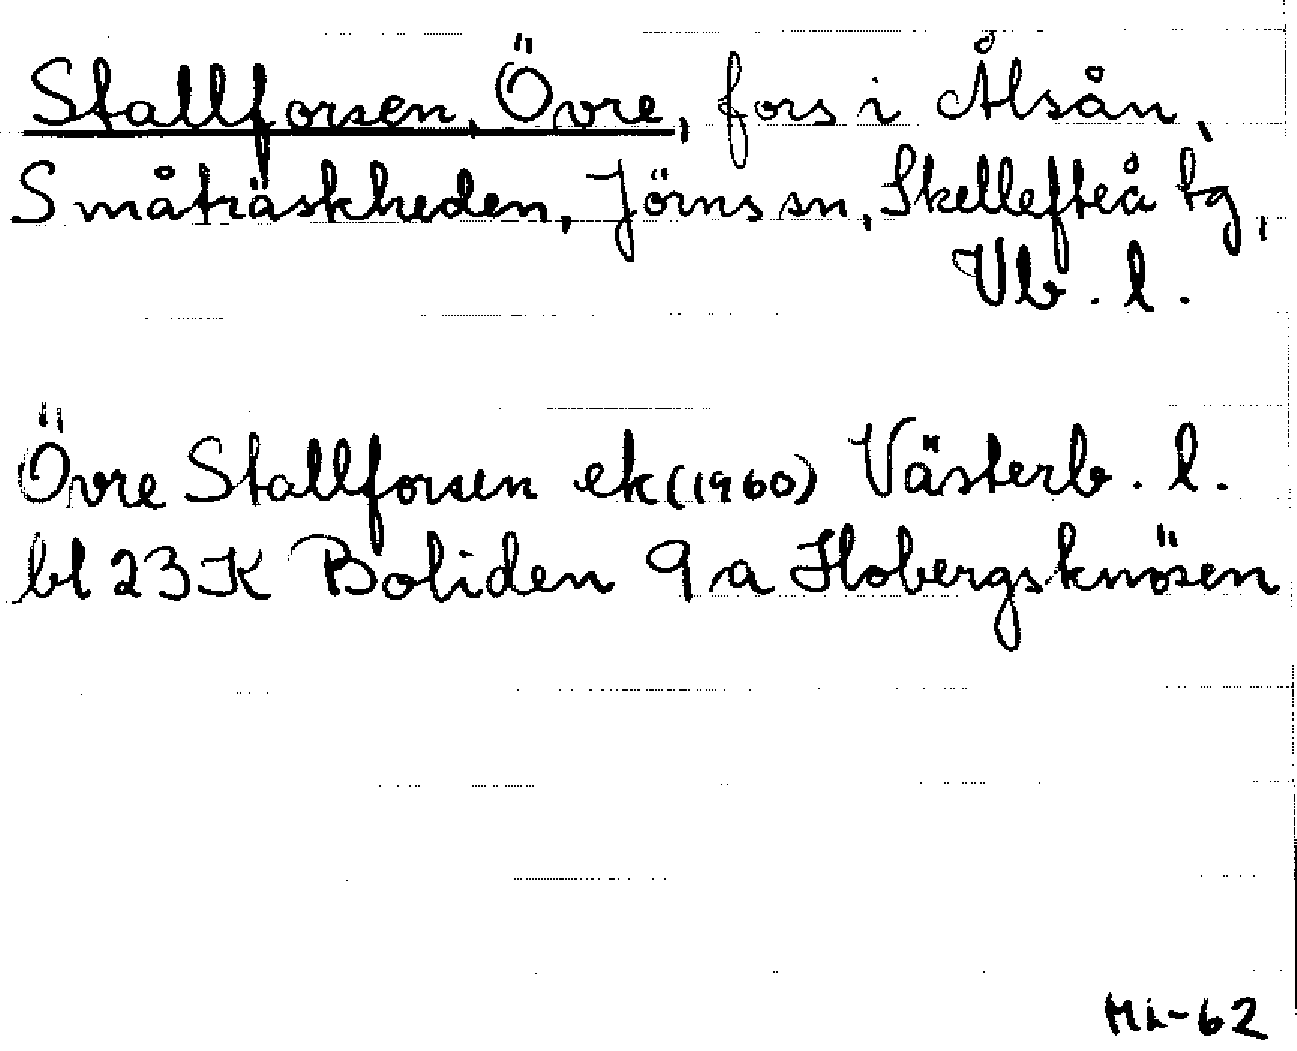 Stallforsen, Övre, fors i Ålsån,
Småträskheden, Jörns sn, Skellefteå tg,
Vb. l.
Övre Stallforsen ek (1960) Västerb. l.
bl 23 K Boliden 9 a Hobergsknösen
ML-62